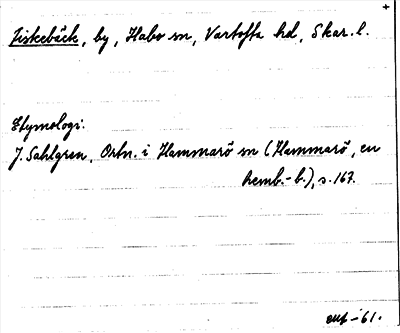 +
Fiskebäck, by, Habo sn, Vartofta hd, Skar. l.
Etymologi:
J. Sahlgren, Ortn. i Hammarö sn (Hammarö, en
hemb.-b.), s. 167.
-61.